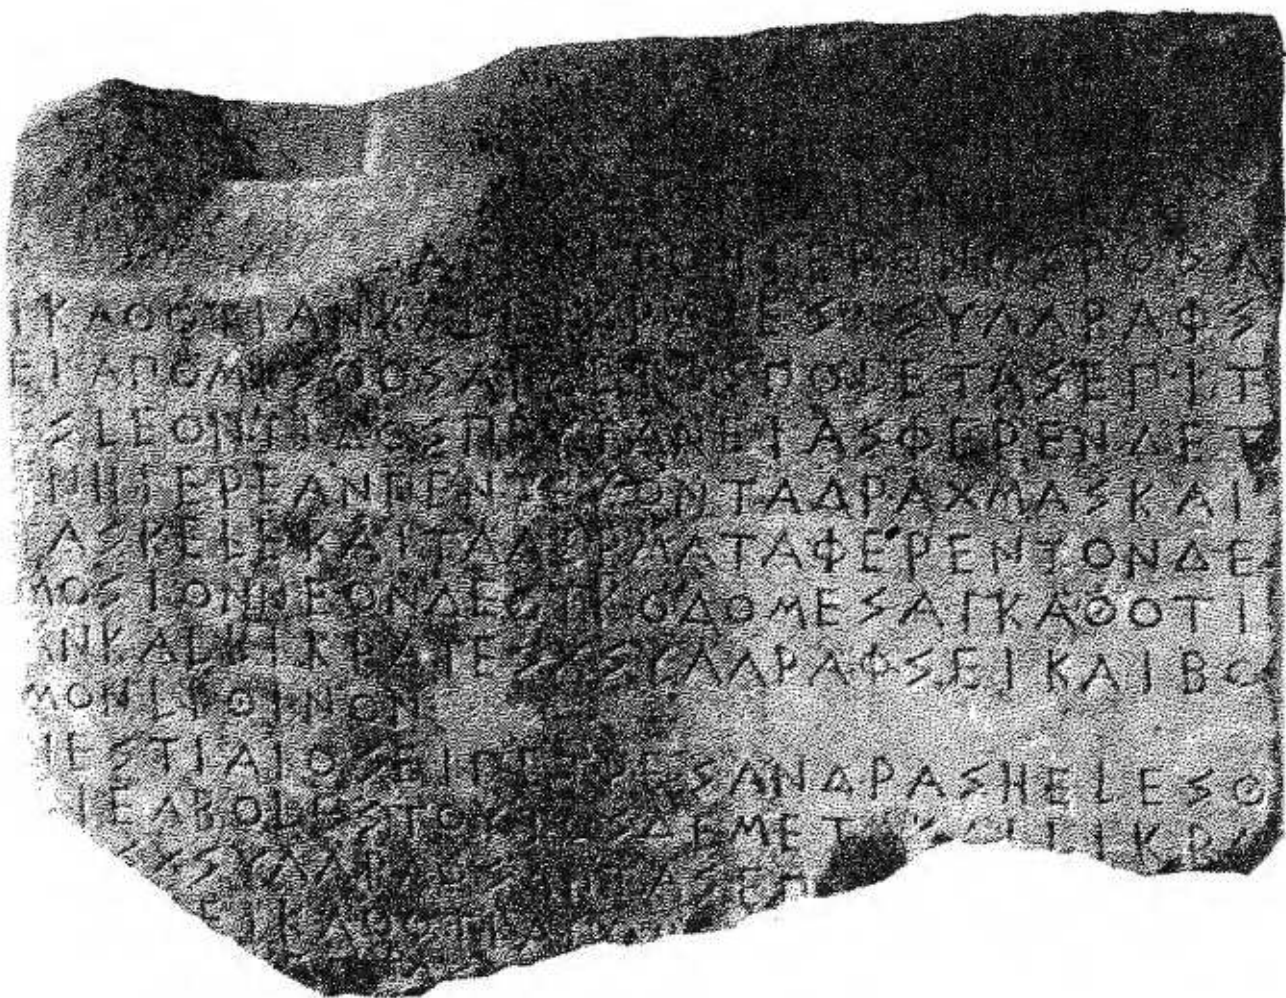 ΚΑΙΤΟΗΙΕΡΟΝΘΥΡΟΣΑ
ΙΚΑΘΟΤΙΑΝΚΑΛΛΙΚΡΑΤΕΣΧΣΥΓΓΡΑΦΣ
ΕΙΑΠΟΜΙΣΘΟΣΑΙΔΕΤΟΣΠΟΛΕΤΑΣΕΠΙΤ
ΕΣΛΕΟΝΤΙΔΟΣΠΡΥΤΑΝΕΙΑΣΦΕΡΕΝΔΕΤ
ΕΝΗΙΕΡΕΑΝΠΕΝΤΕΚΟΝΤΑΔΡΑΧΜΑΣΚΑΙ
ΤΑΣΚΕΛΕΚΑΙΤΑΔΕΡΜΑΤΑΦΕΡΕΝΤΟΝΔΕ
ΜΟΣΙΟΝΝΕΟΝΔΕΟΙΚΟΔΟΜΕΣΑΙΚΑΘΟΤΙ
ΑΝΚΑΛΛΙΚΡΑΤΕΣΧΣΥΓΓΡΑΦΣΕΙΚΑΙΒΟ
ΜΟΝΛΙΘΙΝΟΝ
ΗΕΣΤΙΑΙΟΣΕΙΠΕΤΡΕΣΑΝΔΡΑΣΗΕΛΕΣΘ
ΑΙΕΓΒΟΛΕΣΤΟΥΤΟΣΔΕΜΕΤΑΚΑΛΛΙΚΡΑ
ΣΧΣΥΓΓΡΑΦΣΑΝΤΑΣΕΠ
ΕΙΚΑΘΟΤΙΑΠΟΜ